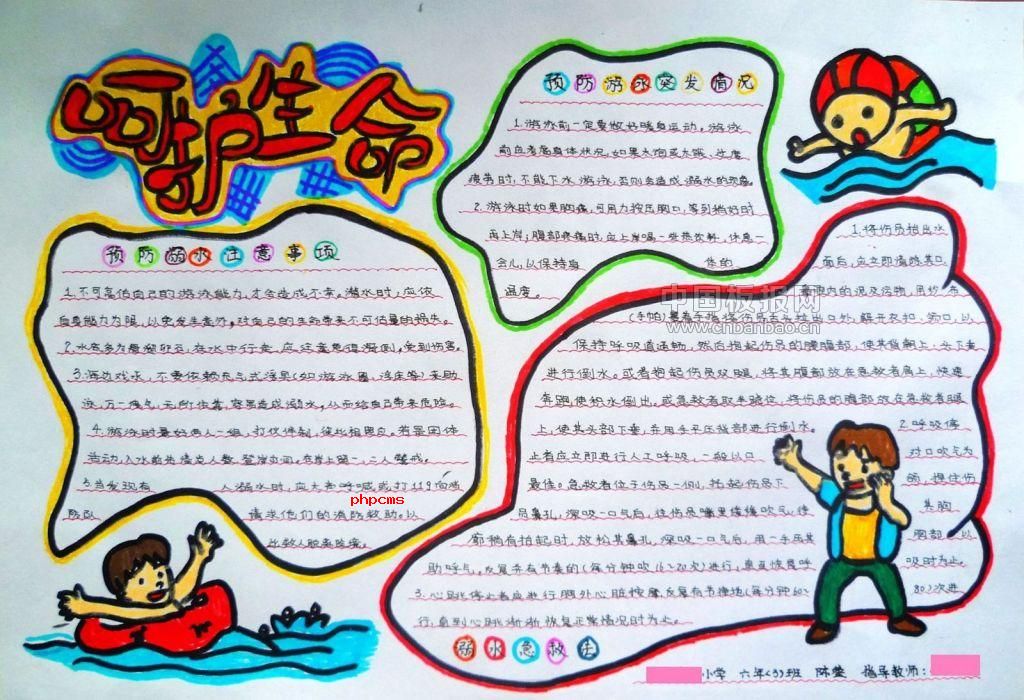 呵护生命
预防溺水注意事项
1.不可高估自己的游泳能力,才会造成不幸。潜水时,应依
自身能力为限,以免发生意外。对自己的生命带来不可估量的损失。
2.水多为鹅卵石,在水中行走,应注意
3.海边戏水,不要依赖充气式浮具(如游泳圈,浮床等)来助
泳,万一泄气,无所依靠,容易造成溺水,从而给自己带来危险。
4.游泳时最好两人一组,彼此相照应。若是团体
活动,入水前先清点人数,在岸上留一、二人警戒。
5.当发现有 人溺水时,应大声呼喊或打119向消
防队 请求他们的消防救助。以
phpcms
预防游泳突发情况
1.游泳前一定要做好暖身运动。游泳
前应考虑身体状况,如果太饱或太饿、过度
疲劳时,不能下水游泳,否则会造成溺水的现象。
2.游泳时如果胸痛,可用力按压胸口,等到稍好时
再上岸;腹部疼痛时,应上岸喝一些热饮料,休息一
会儿,以保持身 体的
温度。
1.将伤员抬出水
面后,应立即清除其口、
鼻腔内的泥及污物,用纱布
(手帕)裹着手指将伤员舌头拉出口外,解开衣扣、领口,以
保持呼吸道通畅,然后抱起伤员的腰腹部,使其背朝上、头下垂
进行倒水。或者抱起伤员双腿,将其腹部放在急救者肩上,快速
奔跑使积水倒出。或急救者取半跪位,将伤员的腹部放在急救者腿
上,使其头部下垂,并用手平压背部进行倒水。 2.呼吸停
止者应立即进行人工呼吸,一般以口 对口吹气为
最佳。急救者位于伤员一侧,托起伤员下 颌,捏住伤
员鼻孔,深吸一口气后,往伤员嘴里缓缓吹气,待 其胸
廓稍有抬起时,放松其鼻孔, 胸部,以
助呼气。反复并有节奏的(每分钟吹16~20次)进行,直至恢复呼 吸时为止。
3.心跳停止者应进行胸外心脏按摩,反复有节律地(每分钟60~ 80)次进
行,直到心跳渐渐恢复正常情况时为止。
溺水急救法
中国板报网
www.cnbanbao.cn
小学 六年(3)班 陈莹 指导教师: